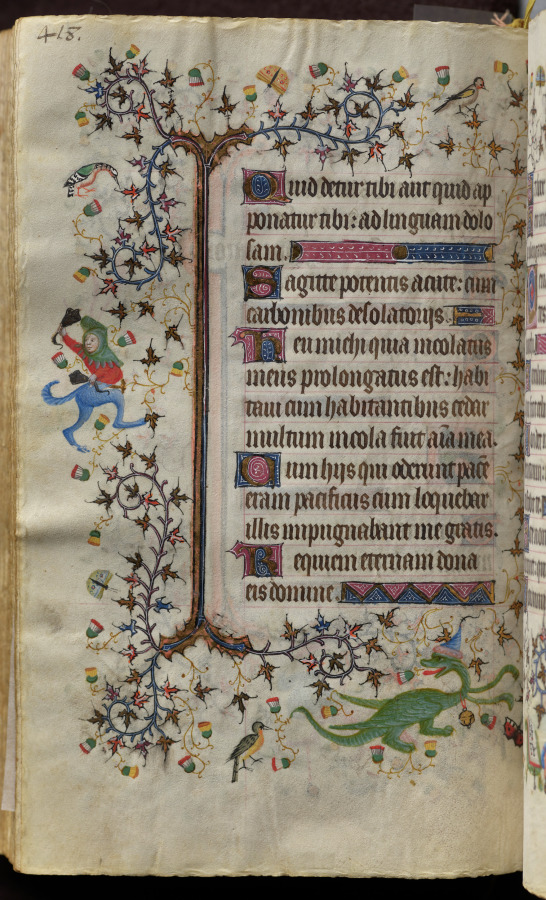 418.
Quid detur tibi aut quid ap
ponatur tibi: ad linguam dolo
sam.
Sagitte potentis acute: cum
carbonibus desolatorijs.
Heu michi quia incolatus
meus prolongatus est: habi
taui cum habitantibus cedar
multum incola fuit aīa mea.
Cum hijs qui oderunt pacē
eram pacificus cum loquebar
illis impugnabant me gratis.
Requiem eternam dona
eis domine.